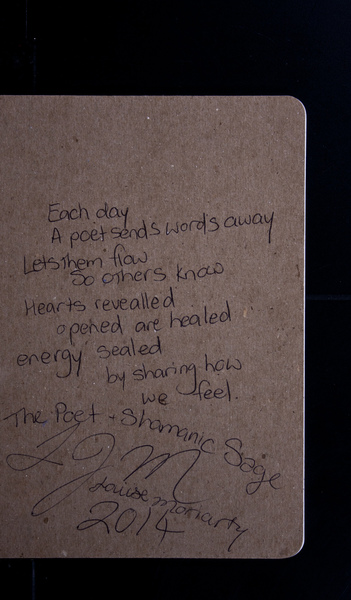 Each day
A poet sends words away
Lets them flow
So others know
Hearts revealled
opened are healed
energy sealed
by sharing how
we feel.
The Poet - Shamanic Sage
LJM
Louise Moriarty
2014